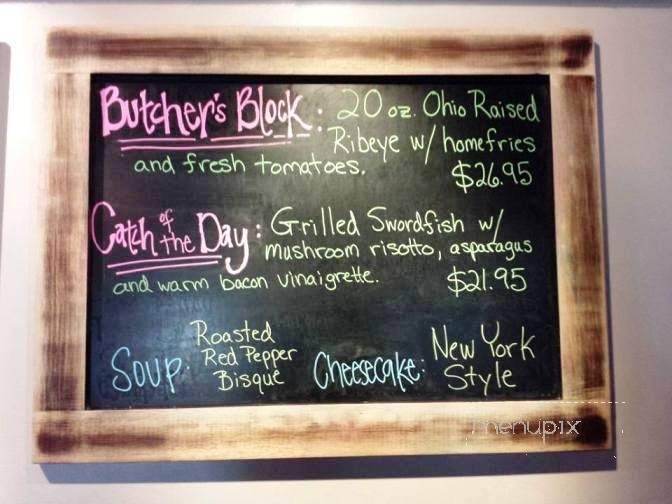 Butcher's Block: 20 oz. Ohio Raised
Ribeye w/ homefries
and fresh tomatoes. $26.95
Catch of the Day: Grilled Swordfish w/
mushroom risotto, asparagus
and warm bacon vinaigrette. $21.95
Soup: Roasted
Red Pepper
Bisque
Cheesecake: New York
Style
menupix